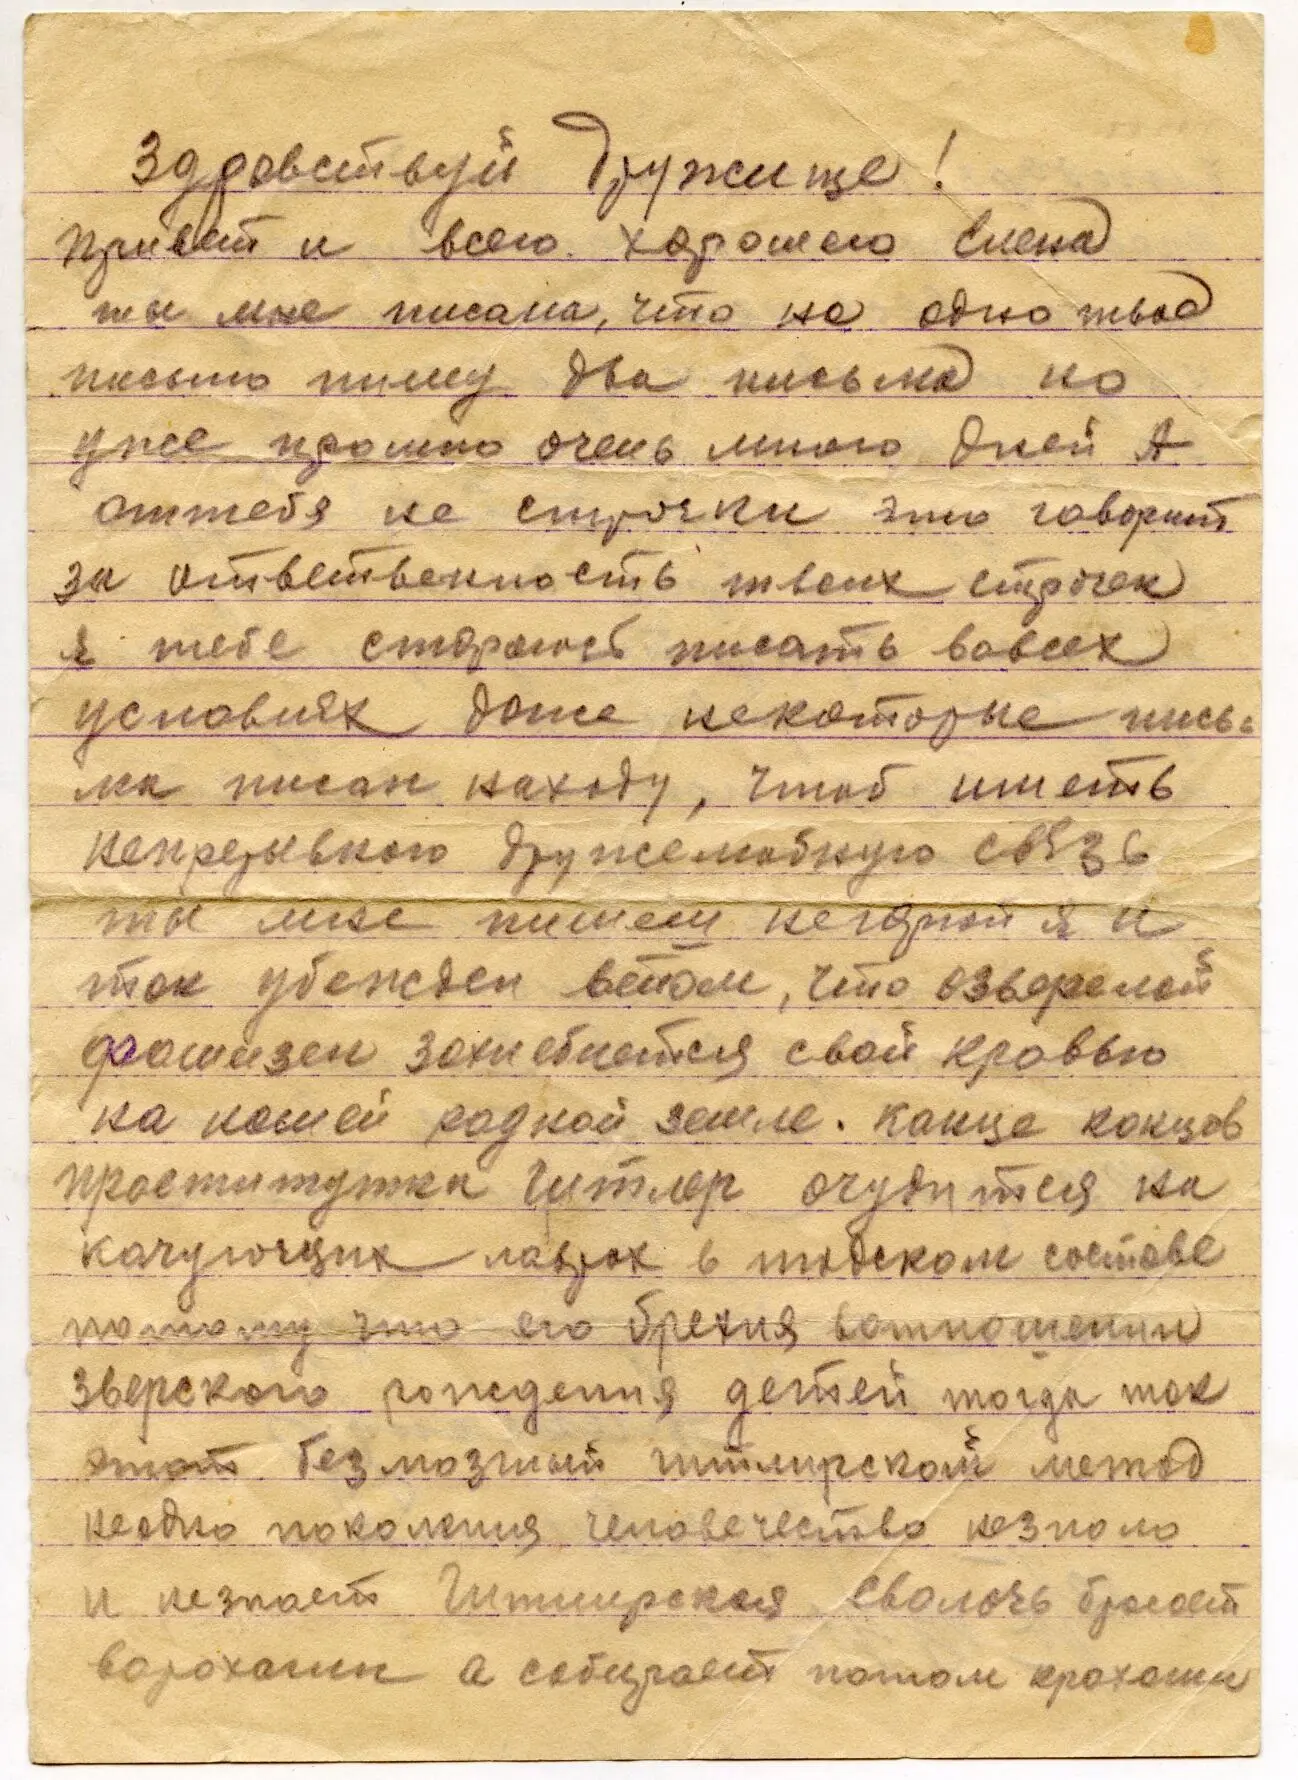 Здравствуй Дружище!
Привет и всего хорошего Елена
ты мне писала, что на одно твоё
письмо пишу два письма но
уже прошло очень много дней А
оттебя не строчки это говорит
за ответственность твоих строчек
я тебе стараюсь писать вовсех
условиях даже некоторые пись
ма писал находу, чтоб иметь
непрерывного дружелюбную связь
ты мне пишеш негодной я и
так убежден ветом, что озверелой
фашизем захлебнется свой кровью
на нашей родной земле. Конце концов
проститутка Гитлер очудится на
качующих лаврах в людском составе
потому что его брехня вотношении
зверского рождения детей тогда как
этот безмозглый гитлирской метод
неодно поколения человечество незнало
и незнает Гитлирская сволочь бросает
ворохами а собирает потом крохами